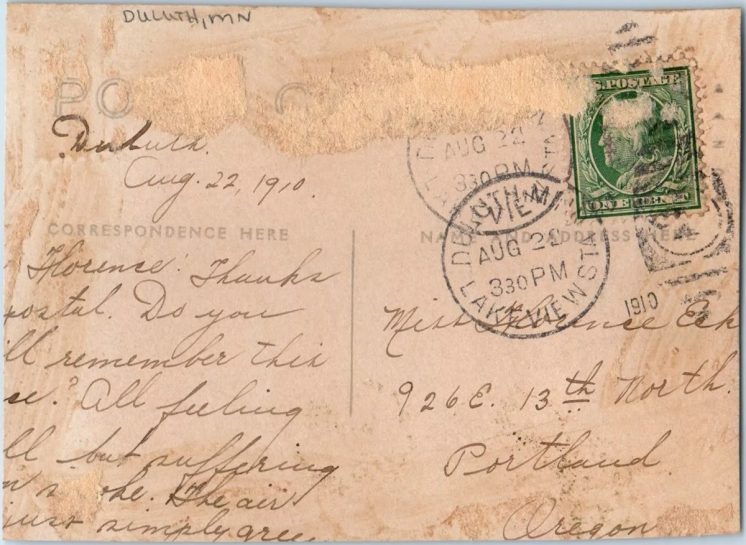 DULUTH, MN
PO
Duluth.
Aug. 22, 1910.
AUG 22
330 PM
DULUTH, M
AUG 22
330 PM
LAKEVIEW STA
1910
S. POSTAGE
CORRESPONDENCE HERE
NA ND ADDRESS HERE
Florence: Thanks
ostal. Do you
ll remember this
se? All feeling
ll but suffering
m s oke. The air
just simply gree
Miss Florence Eck
926 E. 13th North.
Portland.
Oregon